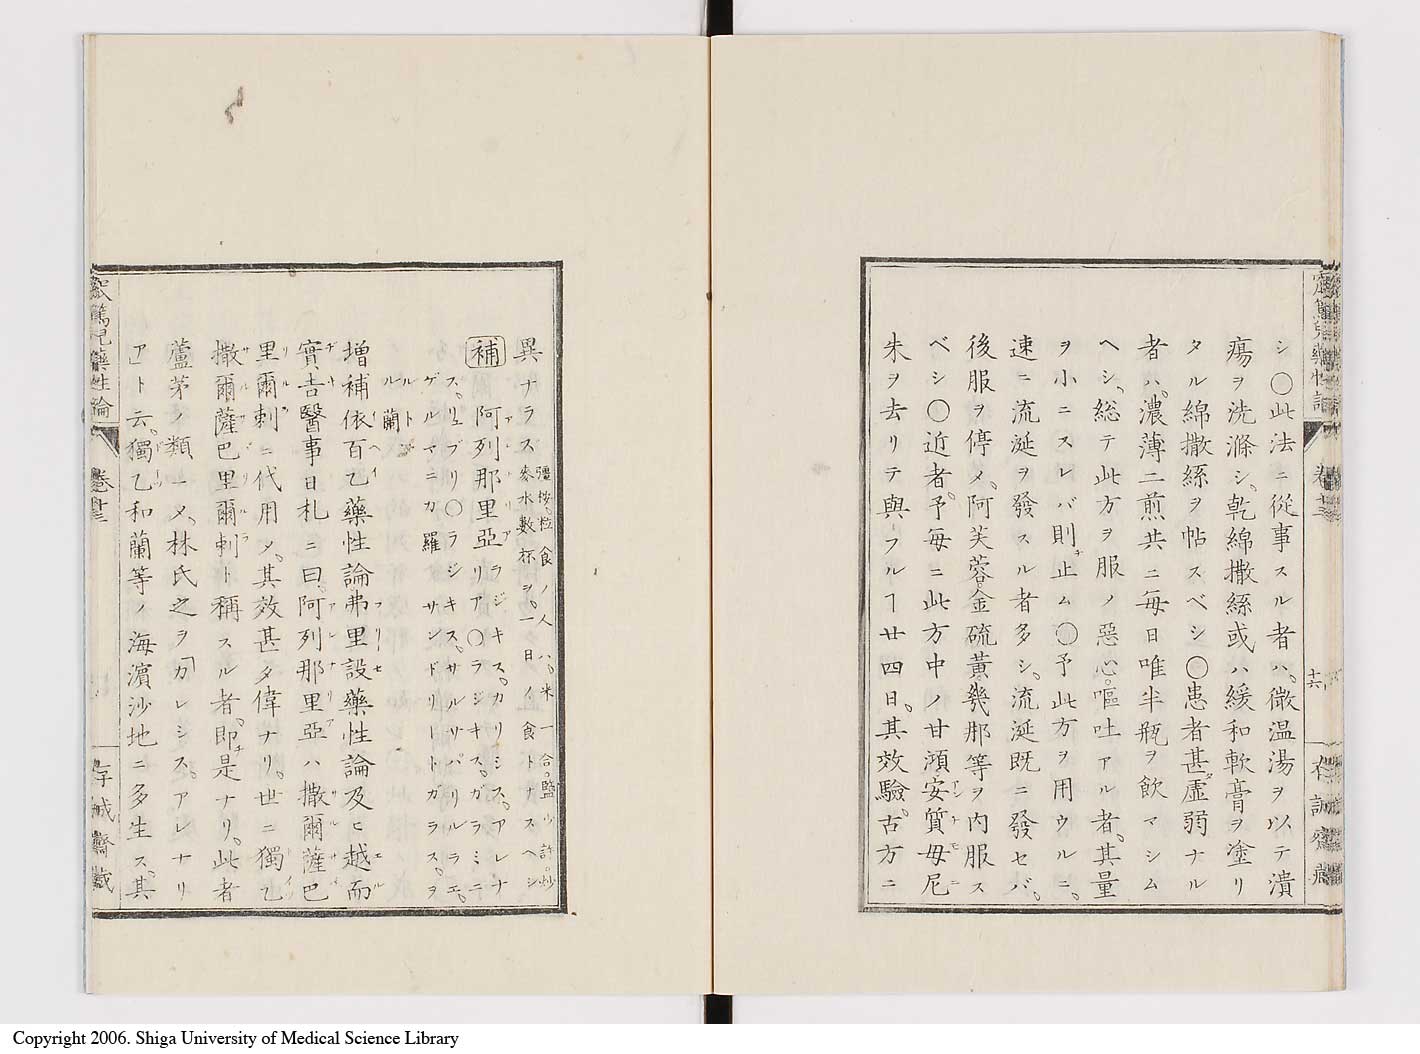 シ○此法ニ從事スル者ハ。微温湯ヲ以テ潰
瘍ヲ洗滌シ。乾綿撒絲或ハ緩和軟膏ヲ塗リ
タル綿撒絲ヲ帖スベシ○患者甚ダ虚弱ナル
者ハ。濃薄二煎共ニ毎日唯半瓶ヲ飲マシム
ヘシ。総テ此方ヲ服ノ惡心。嘔吐アル者。其量
ヲ小ニスレバ則チ止ム○予此方ヲ用ウルニ。
速ニ流涎ヲ發スル者多シ。流涎既ニ發セバ。
後服ヲ停メ。阿芙蓉。金硫黄幾那等ヲ内服ス
ベシ○近者。予毎ニ此方中ノ甘澒安質母尼
朱ヲ去リテ與フルヿ廿四日。其效驗。古方ニ
卷十二
十六
存誠齋藏
異ナラス
彊按。粒食ノ人ハ。米一合。鹽少許。炒
麥水數杯ヲ。一日ノ食トナスヘシ
補 阿列那里亞 ラジキス。カリシス。アレナ
リア○ラジキス。ガラミニ
ス。リュブリ○ラジキス。サルサパリルラエ。
ゲルマニカ 羅 サンドリートガラス。ヲ
ルトル 蘭
増補依百乙藥性論弗里設藥性論及ヒ越而
實吉醫事日札ニ曰。阿列那里亞ハ撒爾薩巴
里爾剌ニ代用メ。其效甚タ偉ナリ。世ニ獨乙
撒爾薩巴里爾剌ト稱スル者。即チ是ナリ。此者
蘆茅ノ類ニメ。林氏之ヲ「カレシス。アレナリ
ア」ト云。獨乙和蘭等ノ海濱沙地ニ多生ス。其
窊篤兒藥性論
卷十二
存誠齋藏
Copyright 2006. Shiga University of Medical Science Library